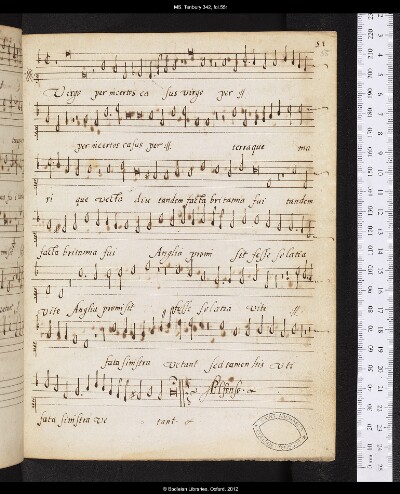 MS. Tenbury 342, fol.55r
51
Virgo per incertos ca sus virgo per ij
per incertos casus per ij terraque ma
ri que vecta diu tandem facta britanna fui tandem
facta britanna fui Anglia promi sit fesso solatia
vite Anglia promisit fesse solatia vite ij
fata sinistra vetant sed tamen his uti
fata sinistra ve tant
© Bodleian Libraries, Oxford, 2012